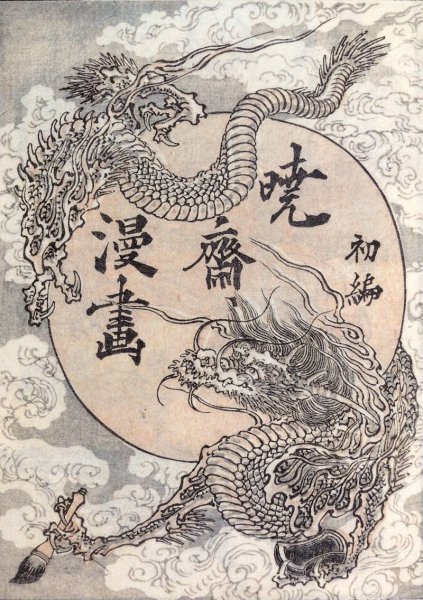 暁齋
漫畫
初編